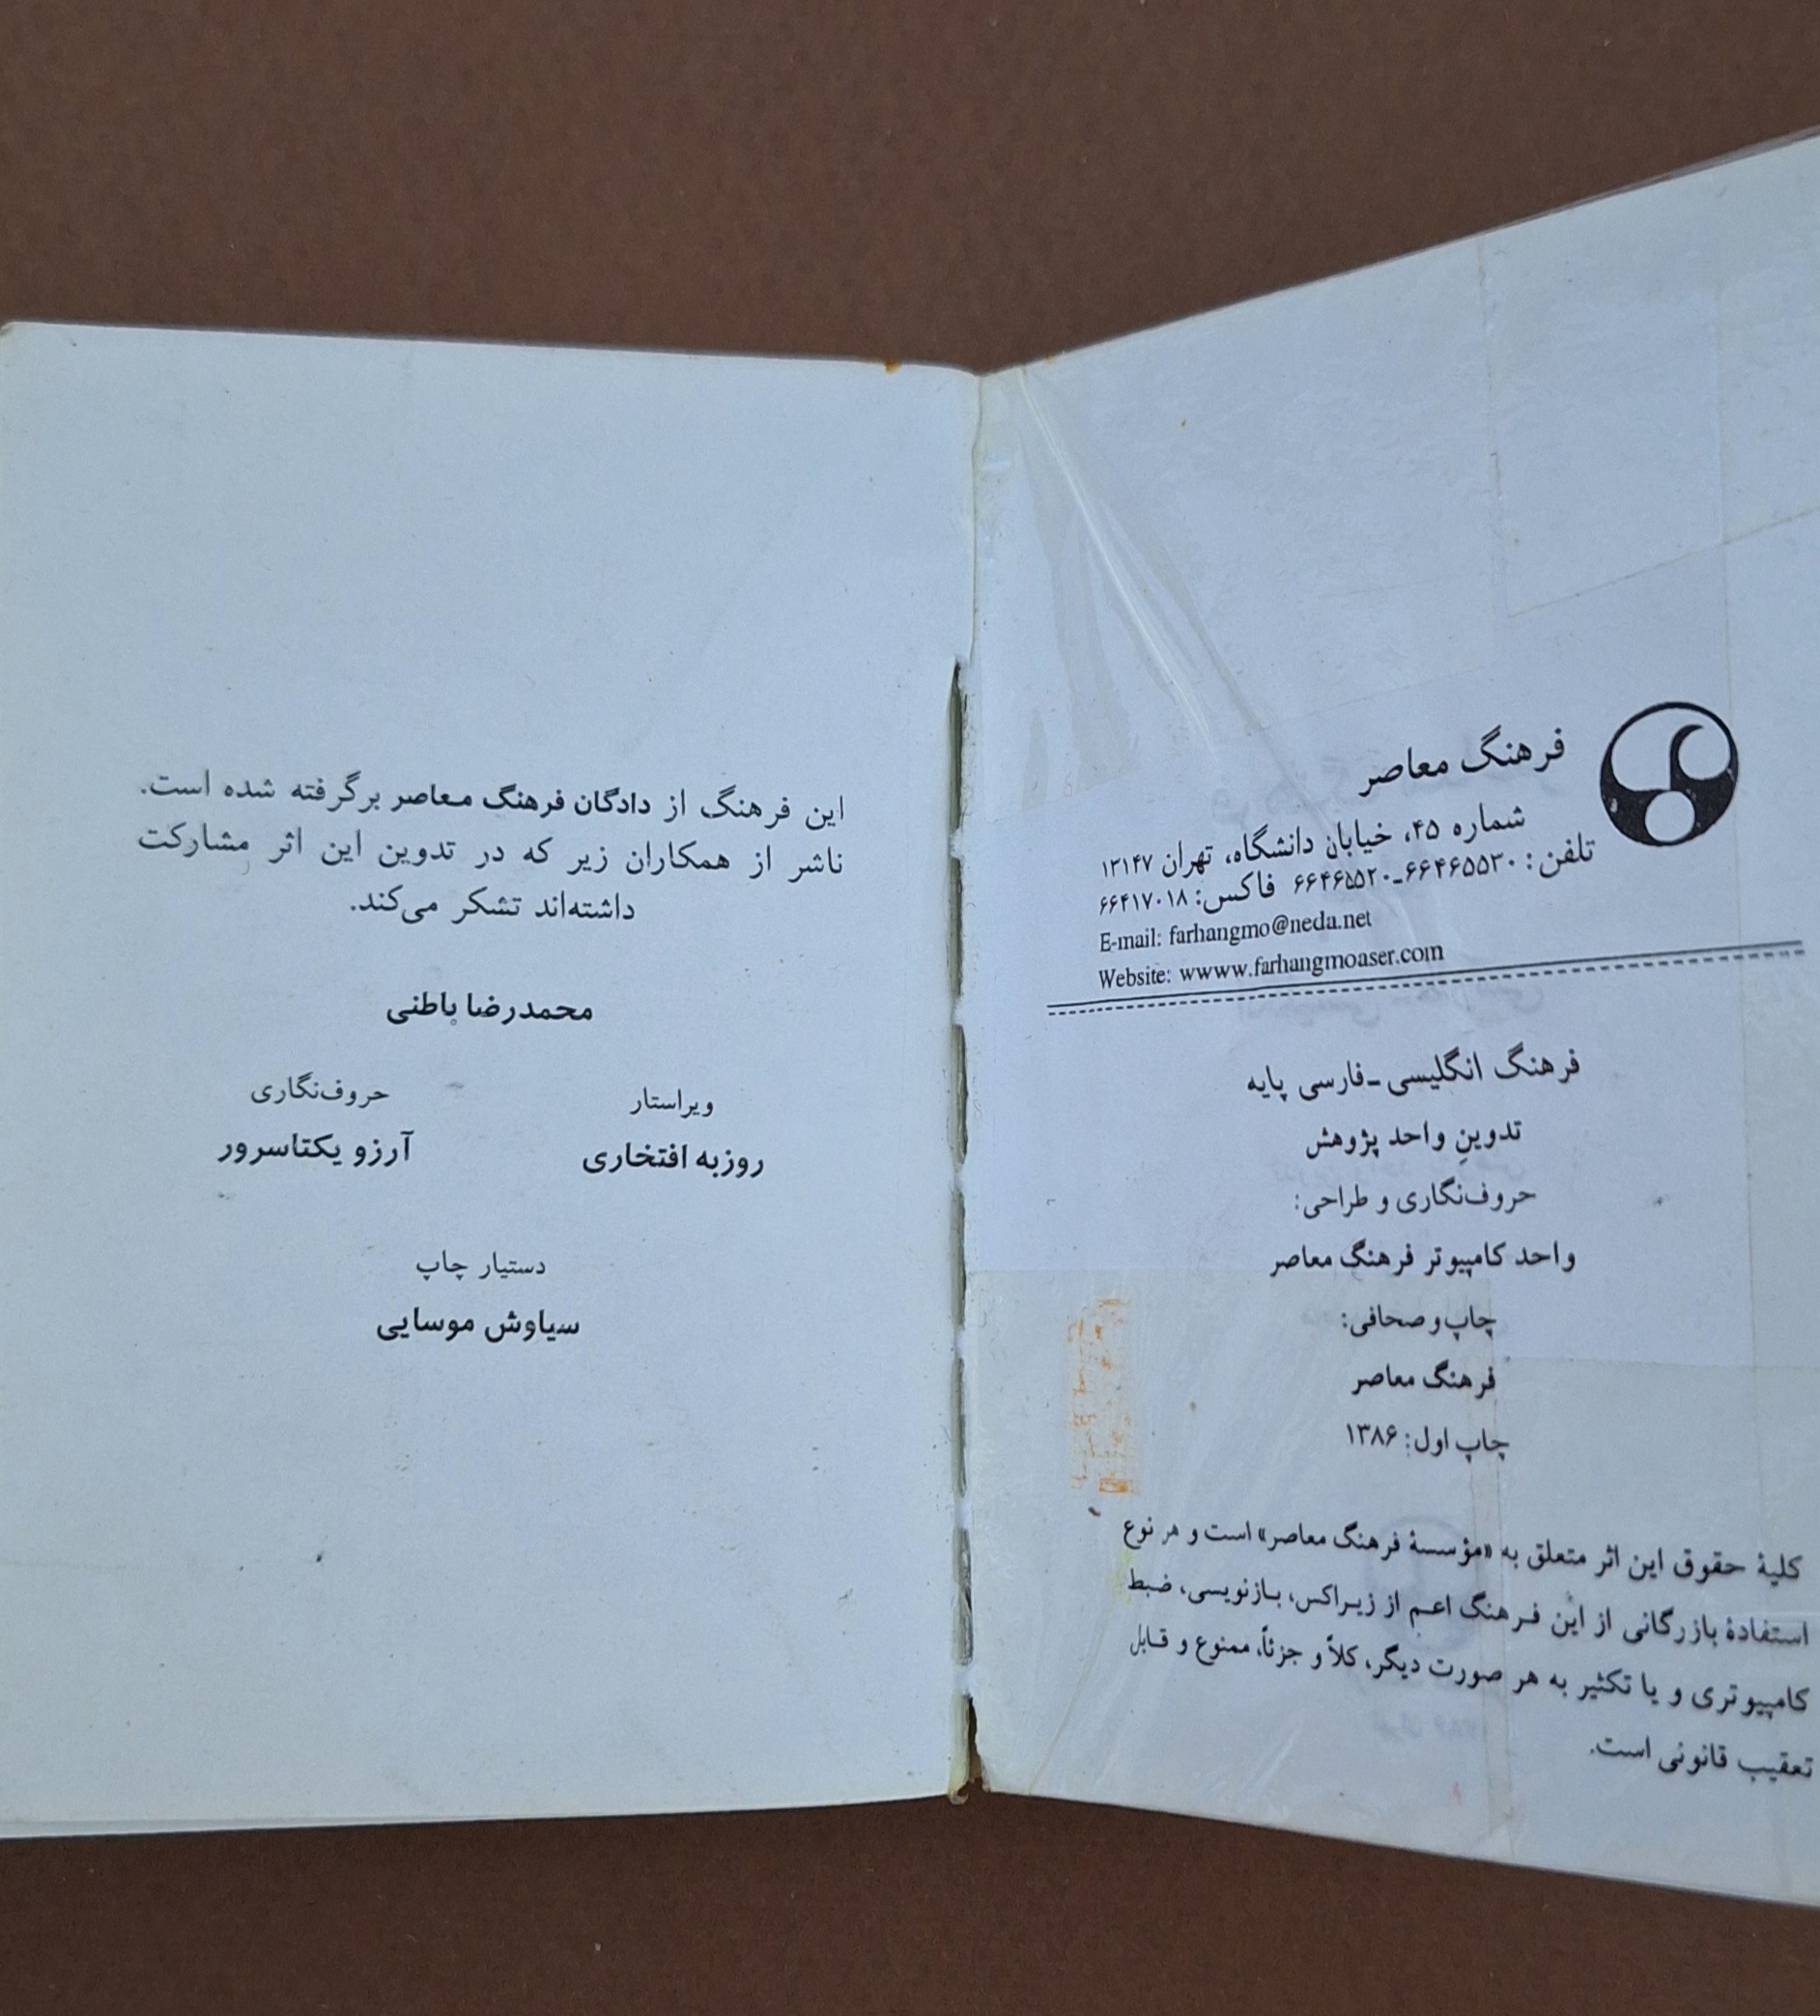 فرهنگ معاصر
شماره ۴۵، خیابان دانشگاه، تهران ۱۳۱۴۷
تلفن: ۶۶۴۶۵۵۳۰ـ۶۶۴۶۵۵۲۰ فاکس: ۶۶۴۱۷۰۱۸
E-mail: farhangmo@neda.net
Website: wwww.farhangmoaser.com
فرهنگ انگلیسی ـ فارسی پایه
تدوینِ واحد پژوهش
حروف‌نگاری و طراحی:
واحد کامپیوتر فرهنگ معاصر
چاپ و صحافی:
فرهنگ معاصر
چاپ اول: ۱۳۸۶
کلیهٔ حقوق این اثر متعلق به «مؤسسهٔ فرهنگ معاصر» است و هر نوع
استفادهٔ بازرگانی از این فرهنگ اعم از زیراکس، بازنویسی، ضبط
کامپیوتری و یا تکثیر به هر صورت دیگر، کلاً و جزئاً، ممنوع و قابل
تعقیب قانونی است.
این فرهنگ از دادگان فرهنگ معاصر برگرفته شده است.
ناشر از همکاران زیر که در تدوین این اثر مشارکت
داشته‌اند تشکر می‌کند.
محمدرضا باطنی
ویراستار حروف‌نگاری
روزبه افتخاری آرزو یکتاسرور
دستیار چاپ
سیاوش موسایی